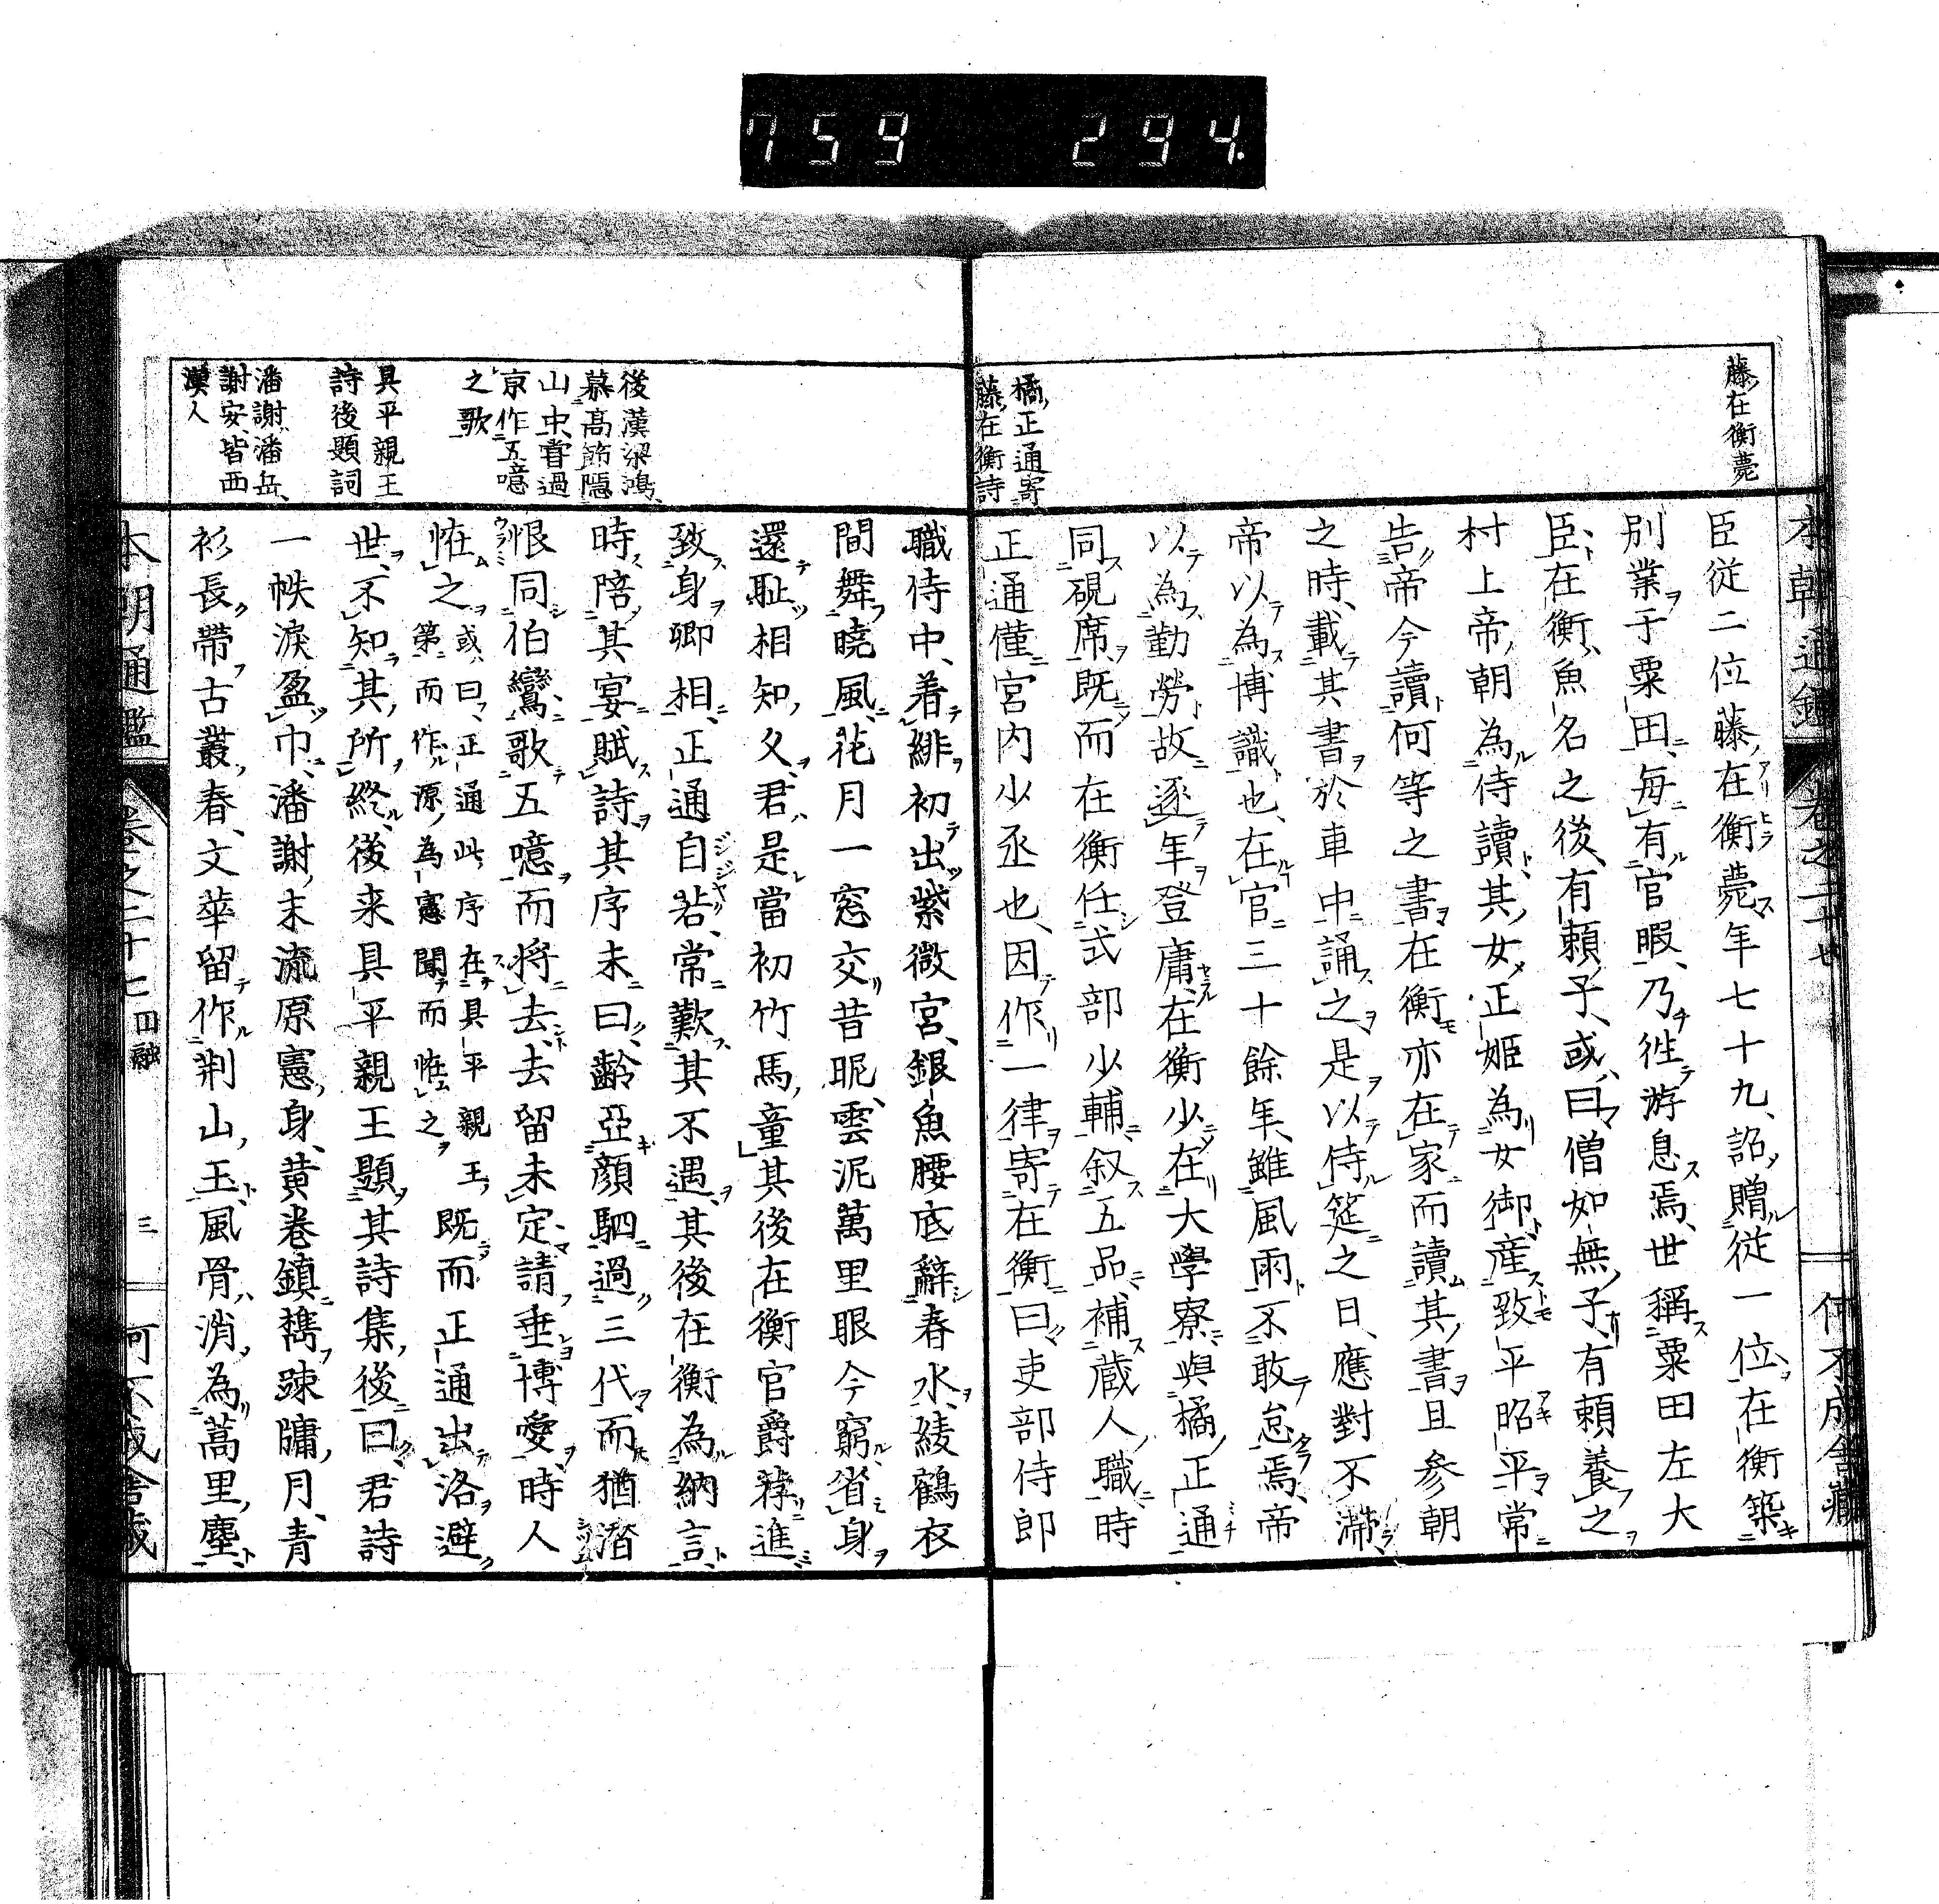 759 294.
藤在衡薨
橘正通寄
藤在衡詩
本朝通鑑 卷之二十七 何不成舎藏
臣從二位藤在衡薨年七十九詔贈從一位在衡築
別業于粟田每有官暇乃徃游息焉世稱粟田左大
臣在衡魚名之後有頼子或曰僧如無子有頼養之
村上帝朝為侍讀其女正姬為女御産致平昭平常
告帝今讀何等之書在衡亦在家而讀其書且參朝
之時載其書於車中誦之是以侍筵之日應對不滯
帝以為博識也在官三十餘年雖風雨不敢怠焉帝
以為勤勞故逐年登庸在衡少在大學寮與橘正通
同硯席既而在衡任式部少輔叙五品補蔵人職時
正通僅宮内少丞也因作一律寄在衡曰吏部侍郎
後漢梁鴻
慕高節隱
山中嘗過
京作五噫
之歌
具平親王
詩後題詞
潘謝潘岳
謝安皆西
漢人
職侍中着緋初出紫微宮銀魚腰底辭春水綾鶴衣
間舞曉風花月一窓交昔昵雲泥萬里眼今窮省身
還耻相知久君是當初竹馬童其後在衡官爵荐進
致身卿相正通自若常歎其不遇其後在衡為納言
時陪其宴賦詩其序末曰齡亞顏駟過三代而猶沿
恨同伯鸞歌五噫而将去去留未定請垂博愛時人
恠之
或曰正通此序在具平親王
第而作源為憲聞而恠之
既而正通出洛避
世不知其所終後来具平親王題其詩集後曰君詩
一帙淚盈巾潘謝末流原憲身黄巻鎮携踈牗月青
衫長帶古叢春文華留作荆山玉風骨消為蒿里塵
本朝通鑑 卷之二十七 円融 三 何不成舎藏